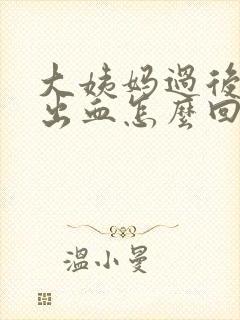 大姨妈過後
出血怎麼回
溫小曼